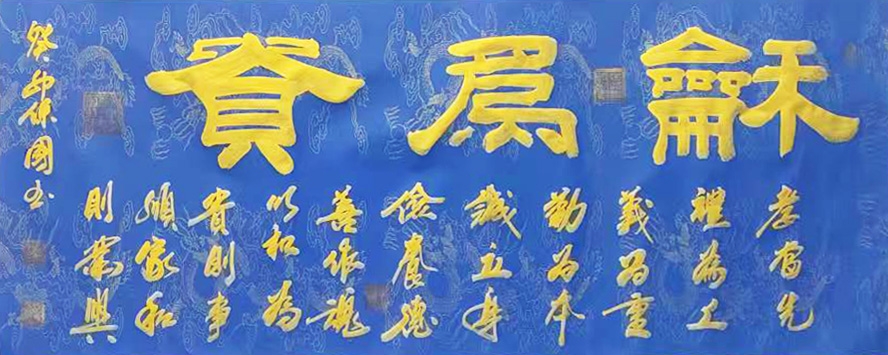 龢為貴
孝当先
禮為上
義为重
勤为本
誠立身
儉養德
善作魂
以和為
貴則事
順家和
則業興
癸卯保國书